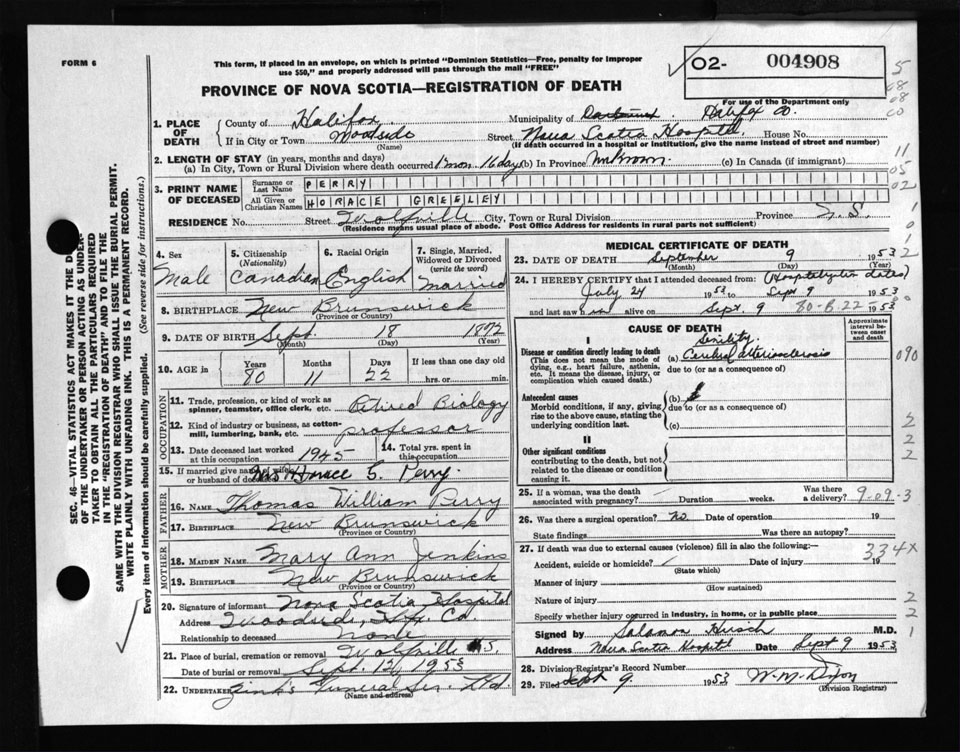 FORM 6
This form, if placed in an envelope, on which is printed "Dominion Statistics—Free, penalty for improper
use $50," and properly addressed will pass through the mail "FREE"
O2- 004908
For use of the Department only
PROVINCE OF NOVA SCOTIA—REGISTRATION OF DEATH
1. PLACE OF DEATH
County of Halifax Municipality of Halifax Co.
If in City or Town Woodside (Name) Street Nova Scotia Hospital House No.
(If death occurred in a hospital or institution, give the name instead of street and number)
2. LENGTH OF STAY (in years, months and days)
(a) In City, Town or Rural Division where death occurred 1 mon. 16 day (b) In Province unknown. (c) In Canada (if immigrant)
3. PRINT NAME OF DECEASED
Surname or Last Name PERRY
All Given or Christian Names HORACE GREELEY
RESIDENCE No. Street Wolfville City, Town or Rural Division Province N. S.
(Residence means usual place of abode. Post Office Address for residents in rural parts not sufficient)
4. Sex Male
5. Citizenship (Nationality) Canadian
6. Racial Origin English
7. Single, Married, Widowed or Divorced (write the word) Married
8. BIRTHPLACE New Brunswick
(Province or Country)
9. DATE OF BIRTH Sept. 18 1872
(Month) (Day) (Year)
10. AGE in Years 80 Months 11 Days 22 If less than one day old hrs. or min.
OCCUPATION
11. Trade, profession, or kind of work as spinner, teamster, office clerk, etc. Retired Biology
12. Kind of industry or business, as cotton-mill, lumbering, bank, etc. professor
13. Date deceased last worked at this occupation 1945
14. Total yrs. spent in this occupation
15. If married give name of wife or husband of deceased Mrs Horace G. Perry.
FATHER
16. NAME Thomas William Perry
17. BIRTHPLACE New Brunswick
(Province or Country)
MOTHER
18. MAIDEN NAME Mary Ann Jenkins
19. BIRTHPLACE New Brunswick
(Province or Country)
20. Signature of informant Nova Scotia Hospital
Address Woodside, Hfx. Co.
Relationship to deceased None
21. Place of burial, cremation or removal Wolfville NS
Date of burial or removal Sept. 12, 1953
22. UNDERTAKER Zink's Funeral Ser. Ltd
MEDICAL CERTIFICATE OF DEATH
23. DATE OF DEATH September 9 1953
(Month) (Day) (Year)
24. I HEREBY CERTIFY that I attended deceased from: (Hospitalization dates)
July 24 1953 to Sept 9 1953
and last saw him alive on Sept. 9 80-8-22 1953
CAUSE OF DEATH
Approximate interval between onset and death
I
Disease or condition directly leading to death
(This does not mean the mode of dying, e.g., heart failure, asthenia, etc. It means the disease, injury, or complication which caused death.)
Senility.
(a) Cerebral Arteriosclerosis
due to (or as a consequence of)
Antecedent causes
Morbid conditions, if any, giving rise to the above cause, stating the underlying condition last.
(b)
due to (or as a consequence of)
(c)
II
Other significant conditions
contributing to the death, but not related to the disease or condition causing it.
25. If a woman, was the death associated with pregnancy? Duration weeks. Was there a delivery? 9-09-3
26. Was there a surgical operation? No Date of operation 19
State findings Was there an autopsy?
27. If death was due to external causes (violence) fill in also the following: 334X
Accident, suicide or homicide? Date of injury 19
(State which)
Manner of injury
(How sustained)
Nature of injury
Specify whether injury occurred in industry, in home, or in public place
Signed by Solomon Hirsch M.D.
Address Nova Scotia Hospital Date Sept 9 1953
28. Division Registrar's Record Number
29. Filed Sept 9. 1953 W. M. Dixon
(Division Registrar)
SEC. 46—VITAL STATISTICS ACT MAKES IT THE DU
OF THE UNDERTAKER OR PERSON ACTING AS UNDER-
TAKER TO OBTAIN ALL THE PARTICULARS REQUIRED
IN THE "REGISTRATION OF DEATH" AND TO FILE THE
SAME WITH THE DIVISION REGISTRAR WHO SHALL ISSUE THE BURIAL PERMIT.
WRITE PLAINLY WITH UNFADING INK. THIS IS A PERMANENT RECORD.
Every item of information should be carefully supplied. (See reverse side for instructions.)
5
08
08
00
11
05
02
1
0
1
2
090
2
2
2
2
2
1